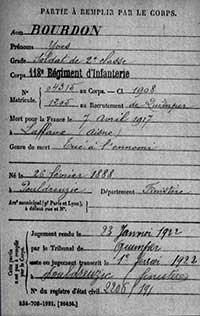 PARTIE À REMPLIR PAR LE CORPS.
Nom BOURDON
Prénoms Yves
Grade Soldat de 2e classe
Corps 118e Régiment d'Infanterie
N° 04315 au Corps. — Cl. 1908
Matricule. 1205 au Recrutement de Quimper
Mort pour la France le 7 Avril 1917
à Laffaux (Aisne)
Genre de mort Tué à l'ennemi
Né le 26 février 1888
à Pouldreuzic Département Finistère
Arrt municipal (pr Paris et Lyon),
à défaut rue et N°.
Cette partie
n'est pas à remplir
par le Corps.
Jugement rendu le 23 Janvier 1922
par le Tribunal de Quimper
acte ou jugement transcrit le 1er février 1922
à Pouldreuzic Finistère
N° du registre d'état civil 2206/191
534-708-1921. [26434.]